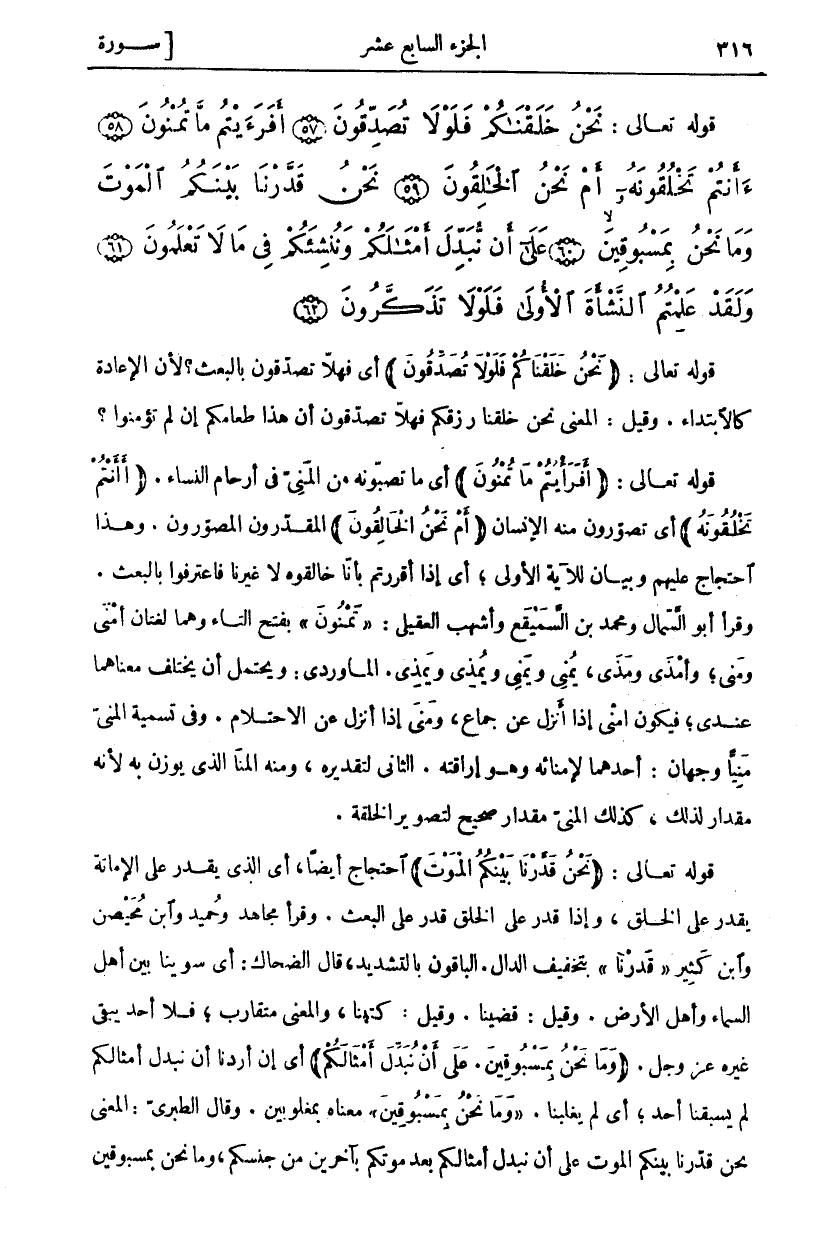 ٣١٦ الجزء السابع عشر [ سـورة
قوله تعـالى : نَحْنُ خَلَقْنَـٰكُمْ فَلَوْلَا تُصَدِّقُونَ ﴿٥٧﴾ أَفَرَءَيْتُم مَّا تُمْنُونَ ﴿٥٨﴾
ءَأَنتُمْ تَخْلُقُونَهُۥٓ أَمْ نَحْنُ ٱلْخَـٰلِقُونَ ﴿٥٩﴾ نَحْنُ قَدَّرْنَا بَيْنَكُمُ ٱلْمَوْتَ
وَمَا نَحْنُ بِمَسْبُوقِينَ ﴿٦٠﴾ عَلَىٰٓ أَن نُّبَدِّلَ أَمْثَـٰلَكُمْ وَنُنشِئَكُمْ فِى مَا لَا تَعْلَمُونَ ﴿٦١﴾
وَلَقَدْ عَلِمْتُمُ ٱلنَّشْأَةَ ٱلْأُولَىٰ فَلَوْلَا تَذَكَّرُونَ ﴿٦٢﴾
قوله تعالى : ﴿ نَحْنُ خَلَقْنَاكُمْ فَلَوْلَا تُصَدِّقُونَ ﴾ أى فهلّا تصدّقون بالبعث؟ لأن الإعادة
كالٱبتداء . وقيل : المعنى نحن خلقنا رزقكم فهلّا تصدّقون أن هذا طعامكم إن لم تؤمنوا ؟
قوله تعـالى : ﴿ أَفَرَأَيْتُمْ مَا تُمْنُونَ ﴾ أى ما تصبّونه من المَنِىّ فى أرحام النساء . ﴿ أَأَنْتُمْ
تَخْلُقُونَهُ ﴾ أى تصوّرون منه الإنسان ﴿ أَمْ نَحْنُ الْخَالِقُونَ ﴾ المقـدّرون المصوّرون . وهـذا
ٱحتجاج عليهم وبيـان للآية الأولى ؛ أى إذا أقررتم بأنّا خالقوه لا غيرنا فاعترفوا بالبعث .
وقرأ أبو السَّمال ومحمد بن السَّمَيْقَع وأشهب العقيلى : « تَمْنُونَ » بفتح التـاء وهما لغتان أَمْنَى
ومَنى ؛ وأَمْذَى ومَذَى ، يُمْنِى ويَمْنِى ويُمْذِى ويَمْذِى . المـاوردى : ويحتمل أن يختلف معناهما
عنـدى ؛ فيكون امْنَى إذا أَنزل عن جماع ، ومَنَى إذا أنزل عن الاحتـلام . وفى تسمية المنىّ
مَنِيًّا وجهان : أحدهما لإمنائه وهـو إراقته . الثانى لتقديره ، ومنه المنَا الذى يوزن به لأنه
مقدار لذلك ، كذلك المنىّ مقدار صحيح لتصوير الخلقة .
قوله تعـالى : ﴿ نَحْنُ قَدَّرْنَا بَيْنَكُمُ الْمَوْتَ ﴾ ٱحتجاج أيضًا ، أى الذى يقـدر على الإماتة
يقـدر على الخـلق ، وإذا قدر على الخلق قدر على البعث . وقرأ مجاهد وحُميد وٱبن مُحَيْصن
وٱبن كَثير « قَدَرْنَا » بتخفيف الدال . الباقون بالتشديد ، قال الضحاك : أى سوينا بين أهل
السماء وأهل الأرض . وقيل : قضينا . وقيل : كتبنا ، والمعنى متقارب ؛ فـلا أحد يبقى
غيره عز وجل . ﴿ وَمَا نَحْنُ بِمَسْبُوقِينَ . عَلَى أَنْ نُبَدِّلَ أَمْثَالَكُمْ ﴾ أى إن أردنا أن نبدل أمثالكم
لم يسبقنا أحد ؛ أى لم يغلبنا . « وَمَا نَحْنُ بِمَسْبُوقِينَ » معناه بمغلوبين . وقال الطبرىّ : المعنى
نحن قدّرنا بينكم الموت على أن نبدل أمثالكم بعد موتكم بآخرين من جنسكم ، وما نحن بمسبوقين